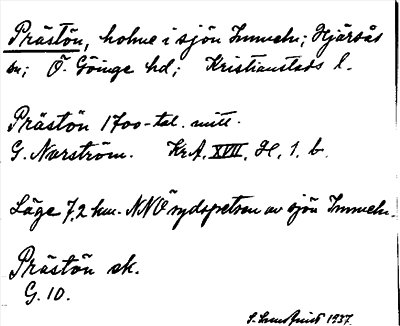 Prästön, holme i sjön Immeln; Hjärsås
sn; Ö. Göinge hd; Kristianstads l.
Prästön 1700-tal. mitt.
G. Narström. Kr.A. XVII, H, 1. b.
Läge 7,2 km. NNÖ sydspetsen av sjön Immeln.
Prästön ek.
G. 10.
1937.